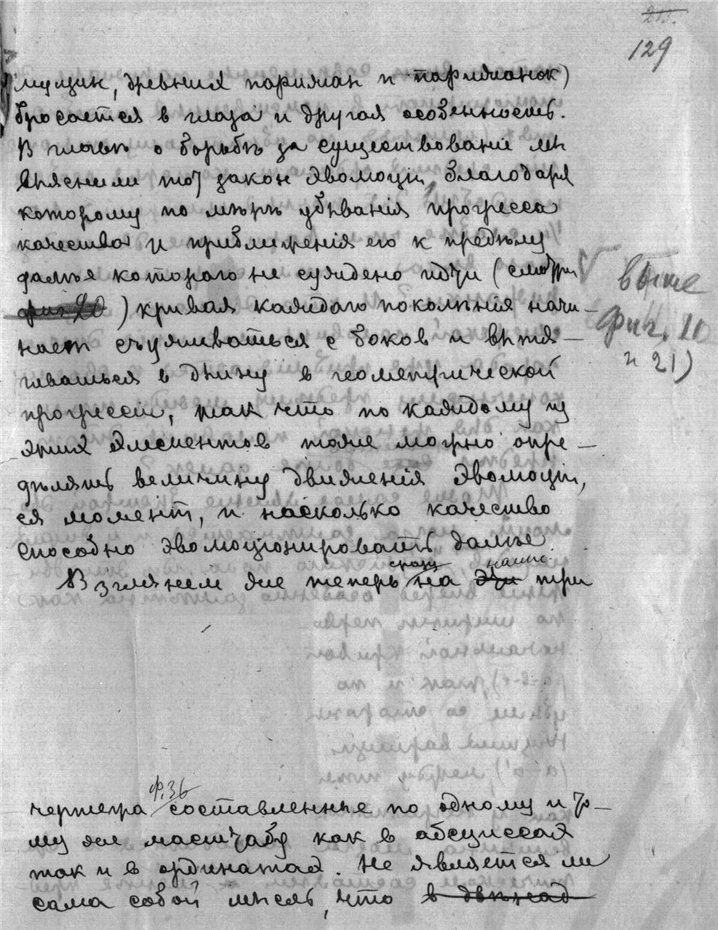 215.
129
мущин, древния парижан и парижанок)
бросается в глаза и другая особенность.
В главѣ о борьбѣ за существованіе мы
выяснили тот закон эволюціи, благодаря
которому по мѣрѣ убыванія прогресса
качества и приближенія его к предѣлу
далѣе котораго не суждено идти (смотри
фиг 20) кривая каждаго поколѣнія начи-
нает съуживаться с боков и вытя-
гиваться в длину в геометрической
прогрессіи, так что по каждому из
этих элементов тоже можно опре-
дѣлять величину движенія эволюціи,
ея момент, и насколько качество
способно эволюціонировать далѣе.
Взглянем же теперь на три
V выше
фиг. 10
и 21)
ф. 36
чертежа составленные по одному и то-
му же масштабу как в абсциссах
так и в ординатах. Не является ли
сама собой мысль, что